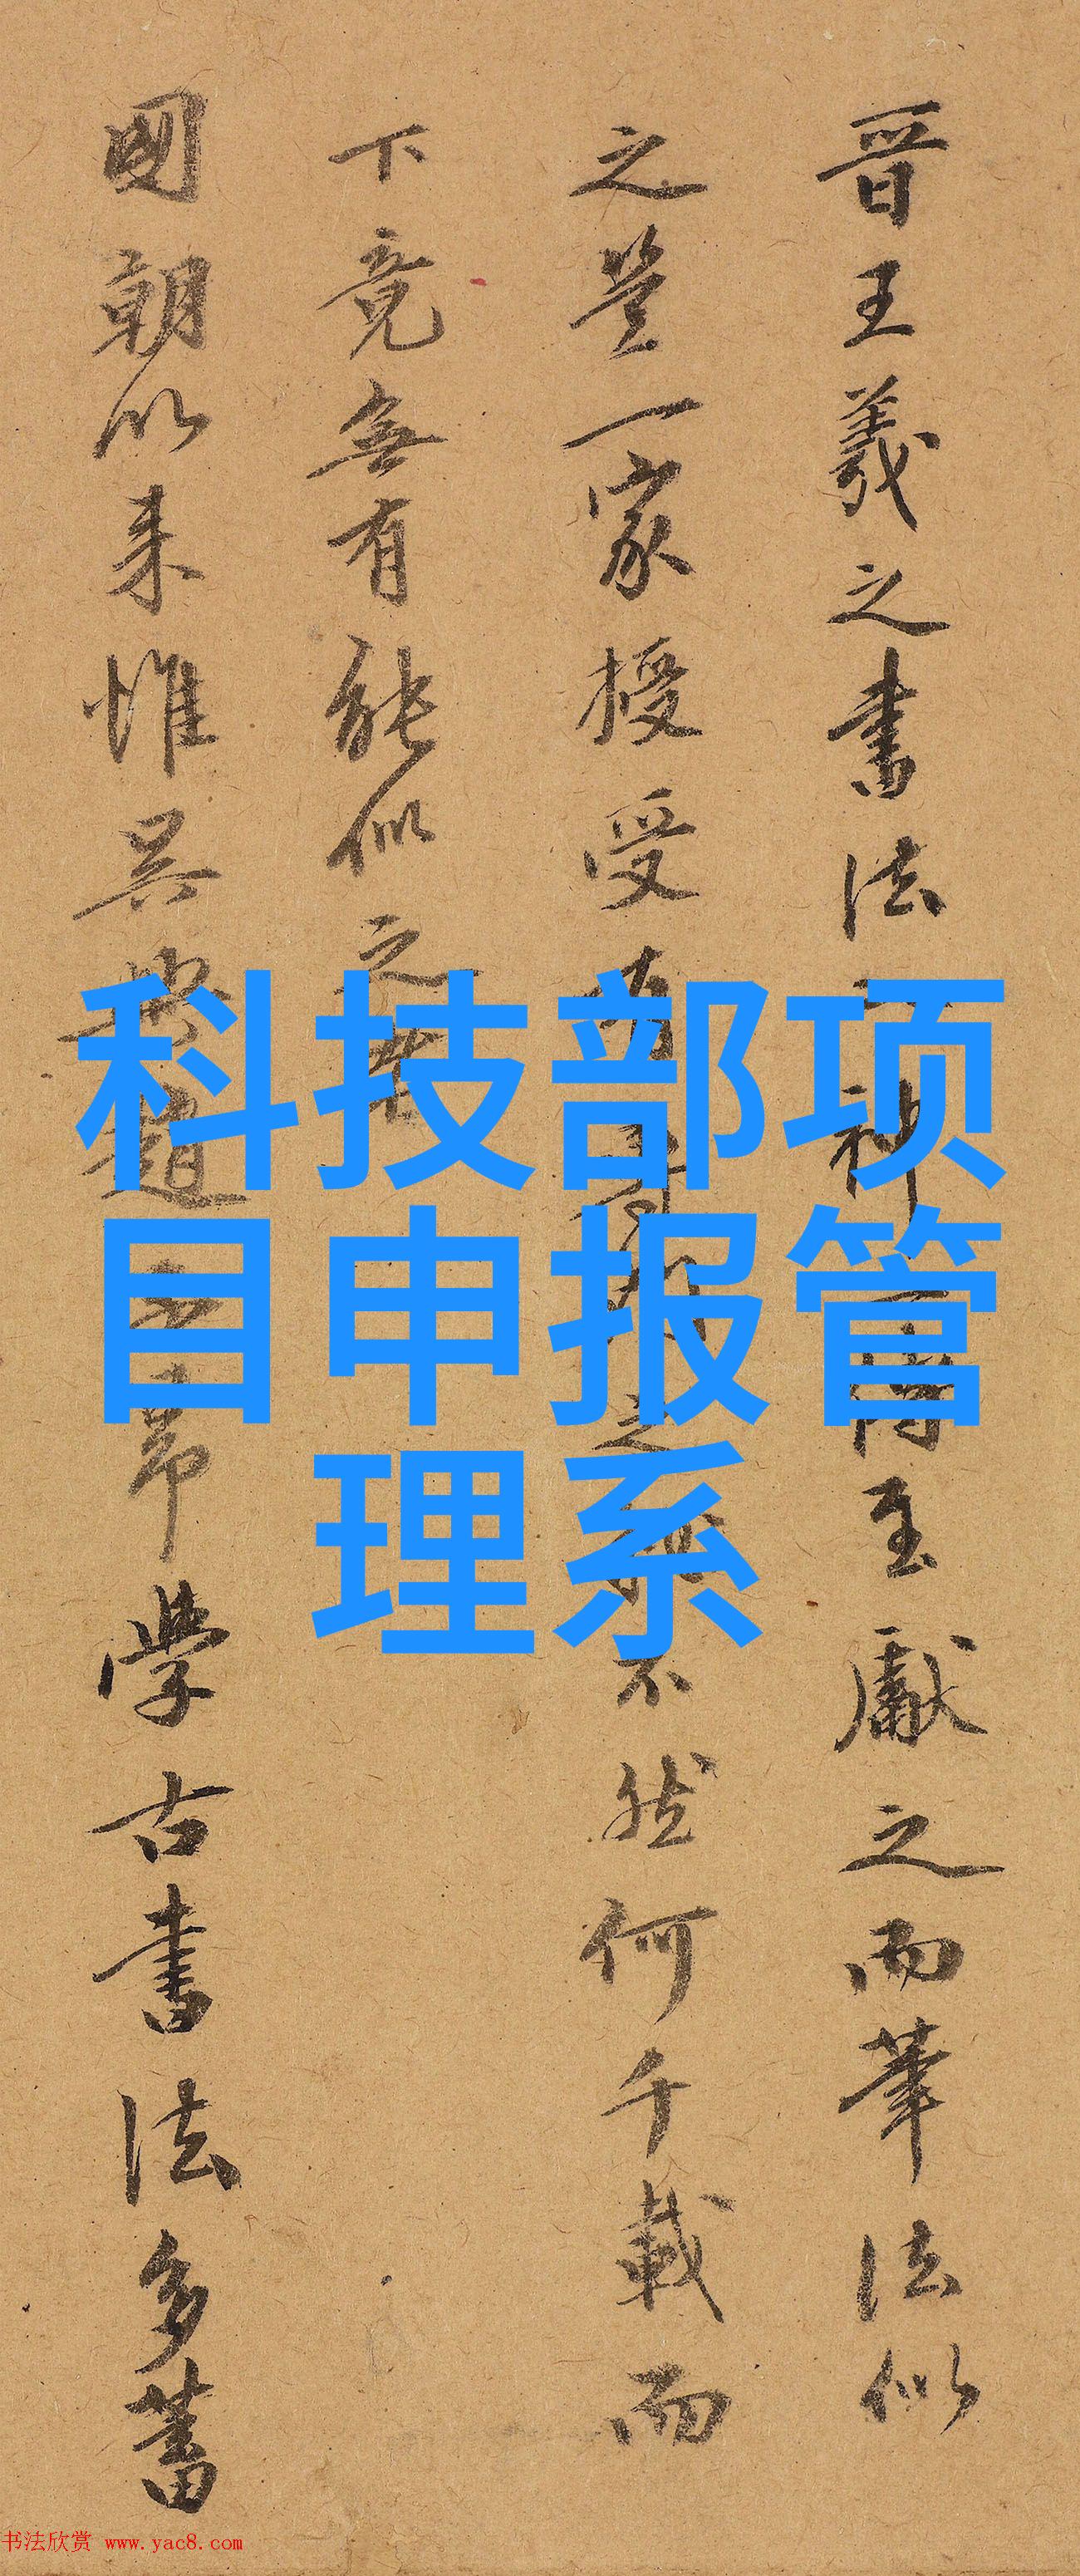 晋王羲之書法
神
至獻之而筆法似
之豈一家授受
不然何千載而
下竟無有能似之者
國朝以来惟吴興趙
學古書法多蓄
科技部项
目申报管
理系
书法欣赏 www.yac8.com